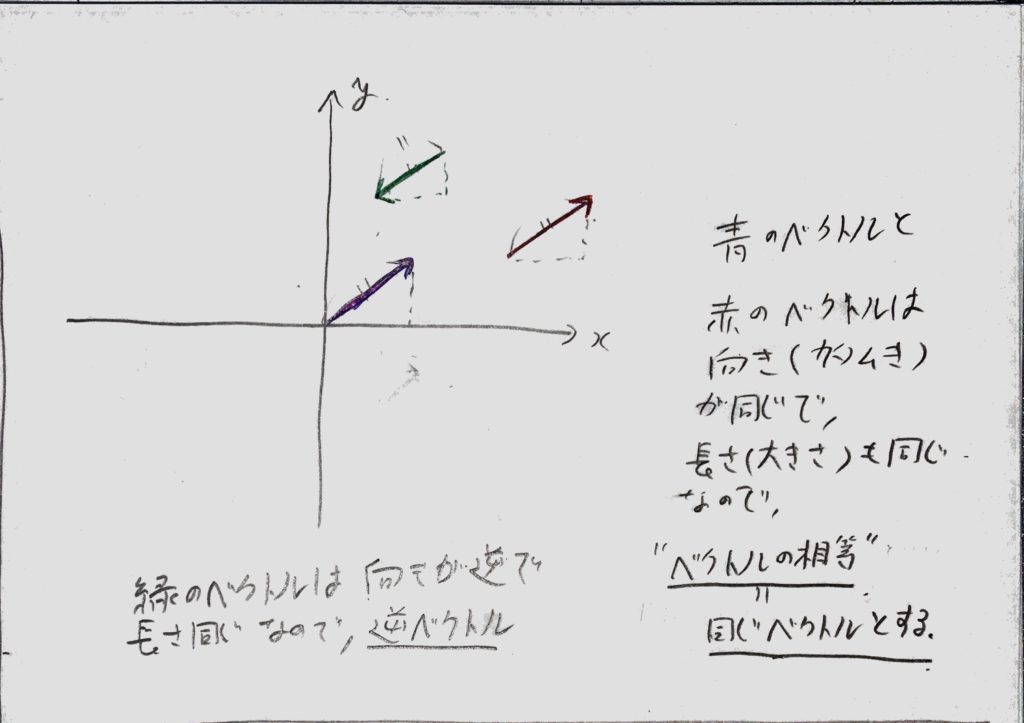 y
x
青のベクトルと
赤のベクトルは
向き(かたむき)
が同じで,
長さ(大きさ)も同じ
なので,
"ベクトルの相等"
=
同じベクトルとする.
緑のベクトルは向きが逆で
長さ同じなので,逆ベクトル